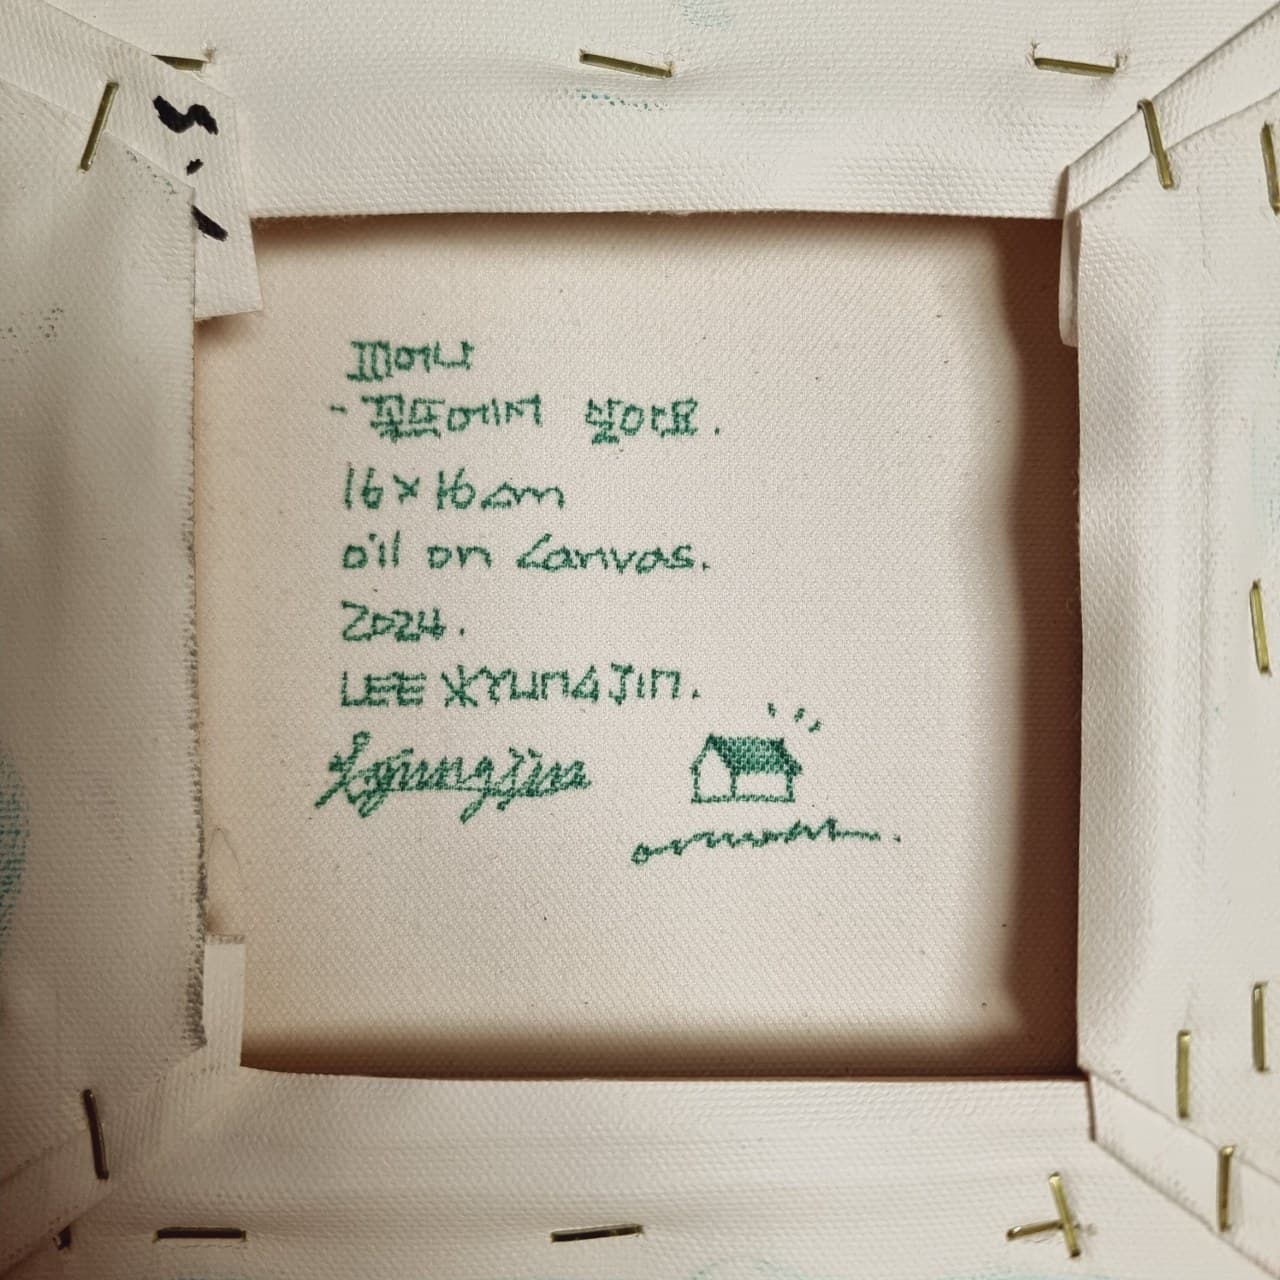 피어나
- 꽃뜨에서 살아요.
16×16cm
oil on canvas.
2024.
LEE KYUNGJIN.
Kyungjin